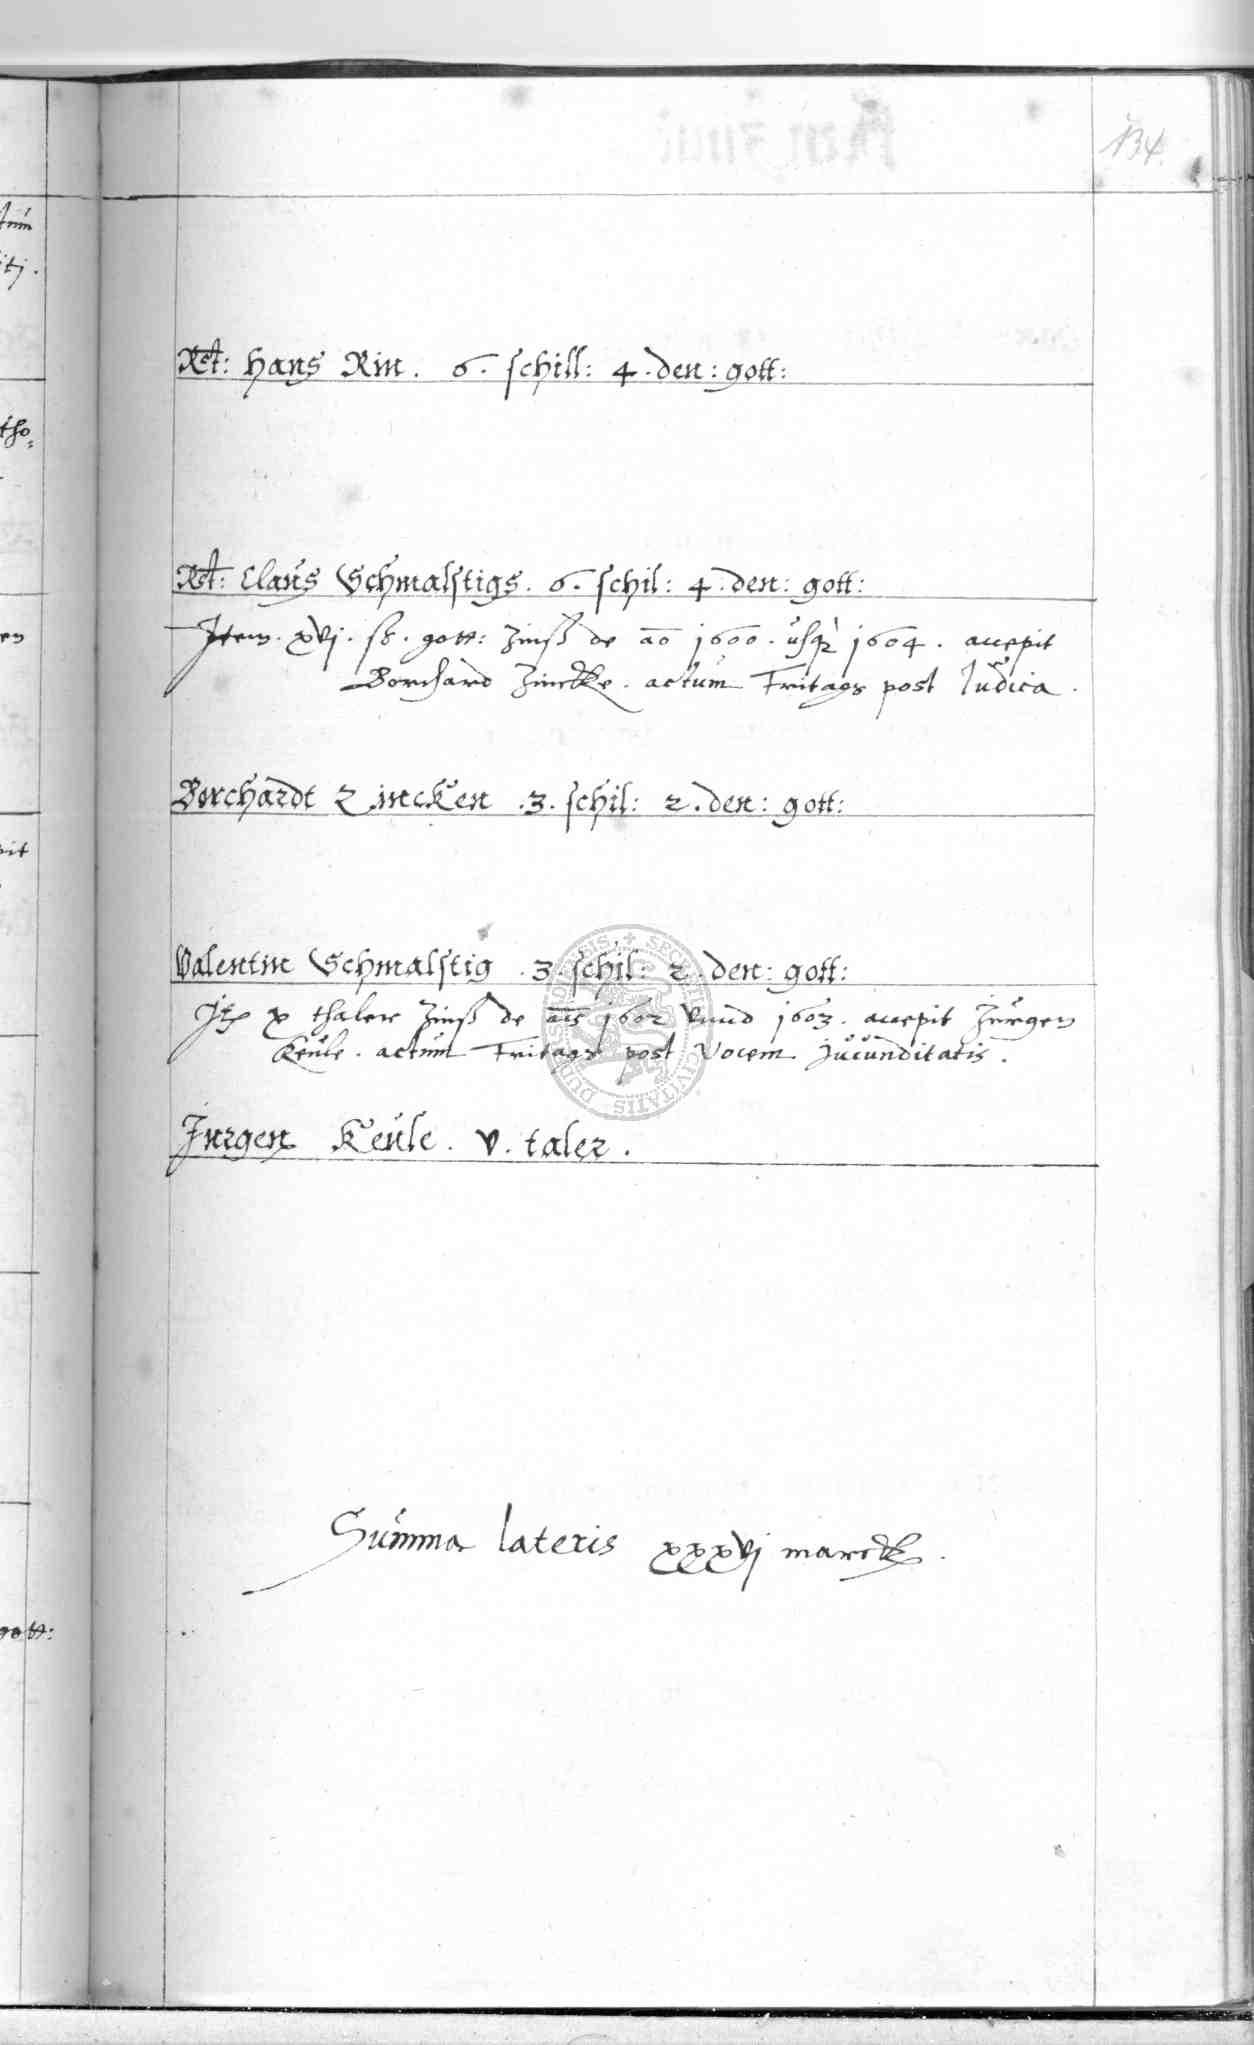 134.
Rct: Hans Rin. 6. schill: 4. den: gott:
Rct: Claus Schmalstigs. 6. schil: 4. den: gott:
Item. xvj. ß. gott: Zinß de ao 1600. usq 1604. accepit
Borchard Zincke. actum Fritags post Judica.
Borchardt Zincken .3. schil: 2. den: gott:
Valentin Schmalstig .3. schil: 2. den: gott:
Jt x thaler Zinß de ais 1602 vnnd 1603. accepit Jurgen
Keule. actum Fritags post Vocem jucunditatis.
Jurgen Keule. v. taler.
Summa lateris xxxvj marck.
gott: